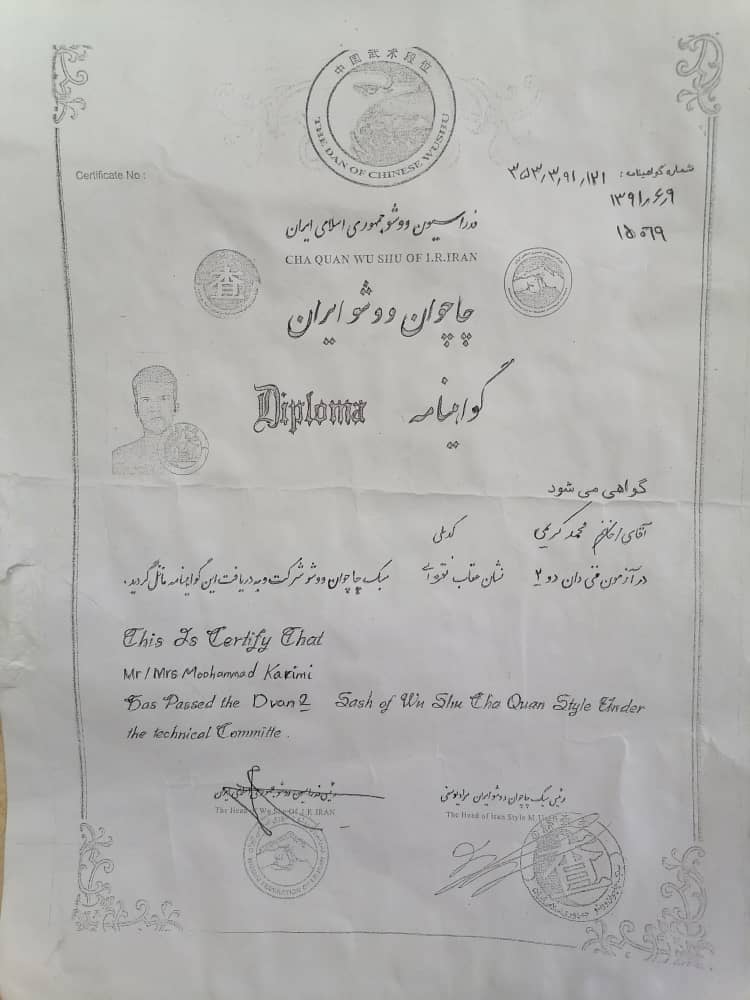 中国武术段位
THE DAN OF CHINESE WUSHU
Certificate No :
شماره گواهینامه : ۳۵۳٫۳٫۹۱٫۱۲۱
۱۳۹۱٫۶٫۹
۱۵۰۶۹
فدراسیون ووشو جمهوری اسلامی ایران
CHA QUAN WU SHU OF I.R.IRAN
查
چاچوان ووشو ایران
Diploma گواهینامه
گواهی می شود
آقای / خانم محمد کریمی کد ملی
در آزمون فنی دان دو ۲ نشان عقاب نقره ای سبک چاچوان ووشو شرکت و به دریافت این گواهینامه نائل گردید.
This Is Certify That
Mr / Mrs Moohammad Karimi
Has Passed the Dvan 2 Sash of Wu Shu Cha Quan Style Under
the technical Committe .
رئیس فدراسیون ووشو جمهوری اسلامی ایران
The Head Wu Shu Of I.R IRAN
رئیس سبک چاچوان ووشو ایران مراد یوسفی
The Head of Iran Style M.
WUSHU FEDERATION OF I.R.IRAN
查